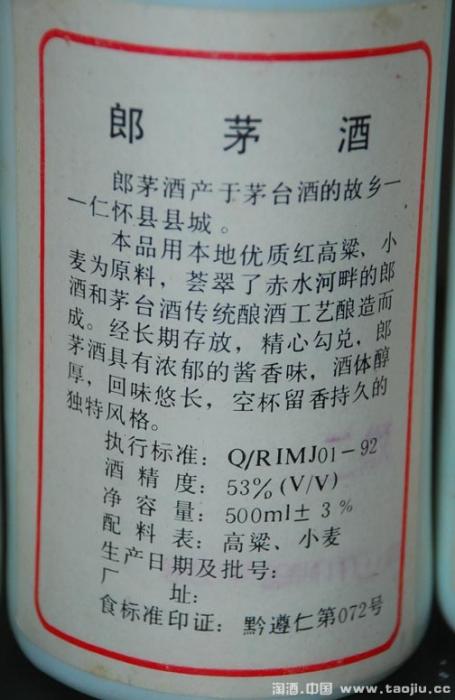 郎茅酒
郎茅酒产于茅台酒的故乡一
一仁怀县县城。
本品用本地优质红高粱、小
麦为原料，荟翠了赤水河畔的郎
酒和茅台酒传统酿酒工艺酿造而
成。经长期存放，精心勾兑，郎
茅酒具有浓郁的酱香味，酒体醇
厚，回味悠长，空杯留香持久的
独特风格。
执行标准：Q/RIMJ01-92
酒精度：53%(V/V)
净容量：500ml±3%
配料表：高粱、小麦
生产日期及批号：
厂址：
食标准印证：黔遵仁第072号
淘酒.中国 www.taojiu.cc